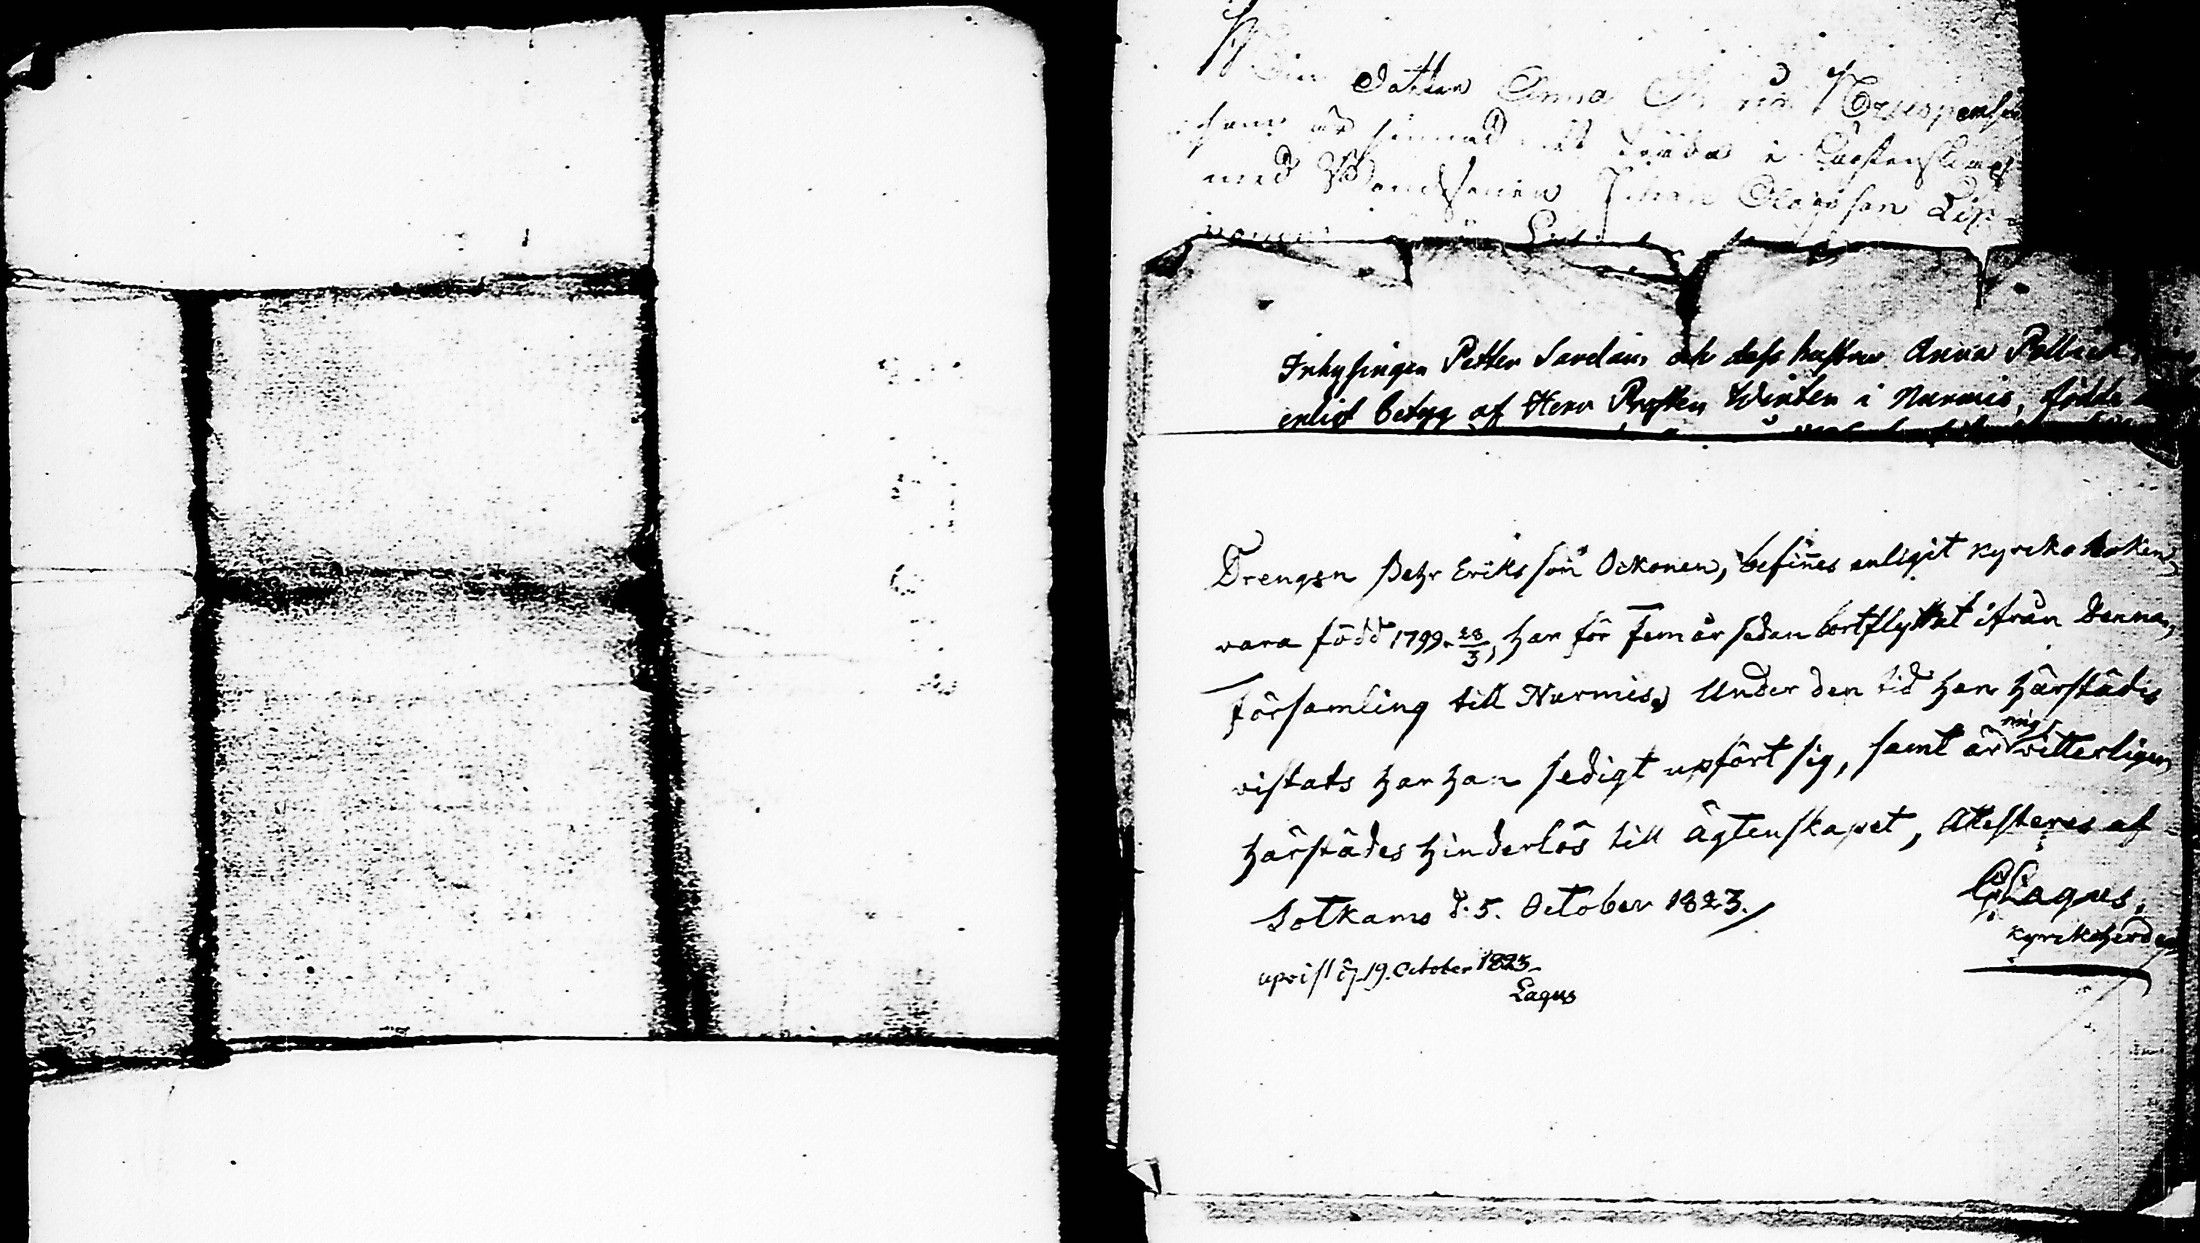 Min Dotter Anna
som är sinnad att träda i Ächtenskap
med Bondesonen Johan Olofsson
Inhysingen Petter Sardain och dess hustru Anna
enligt betyg af Herr Prosten Winter i Nurmis, födde
Drengen Petr Eriksson Ockonen, befines enligit kyrkoboken,
vara född 1799. 28/3, har för Fem år sedan bortflyttat ifrån Denna,
Församling till Nurmis, Under den tid han härstädes
vistats har han sedigt upfört sig, samt är mig vitterligen
härstädes hinderlös till Ägtenskapet, Attesteras af
Sotkamo d. 5. October 1823.
Lagus,
kyrckoherde
upvist d. 19. October 1823
Lagus